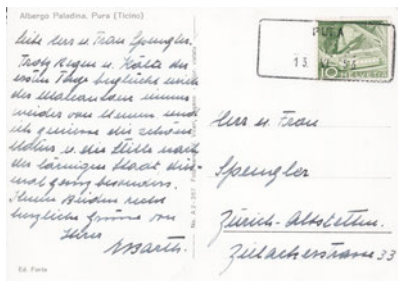 Albergo Paladina, Pura (Ticino)
Liebe Herr u. Frau Spengler.
Trotz Regen u. Kälte der
ersten Tage beglückt mich
wieder von Neuem und
ich geniesse die schöne
Natur u. die Stille nach
der lärmigen Stadt, dies-
mal ganz besonders.
Ihnen Beiden recht
herzliche Grüsse von
Ihrer
Barth.
Ed. Fanta
PURA
13. 53
10 HELVETIA
Herr u. Frau
Spengler
Zürich-Altstetten.
Zielackerstrasse 33